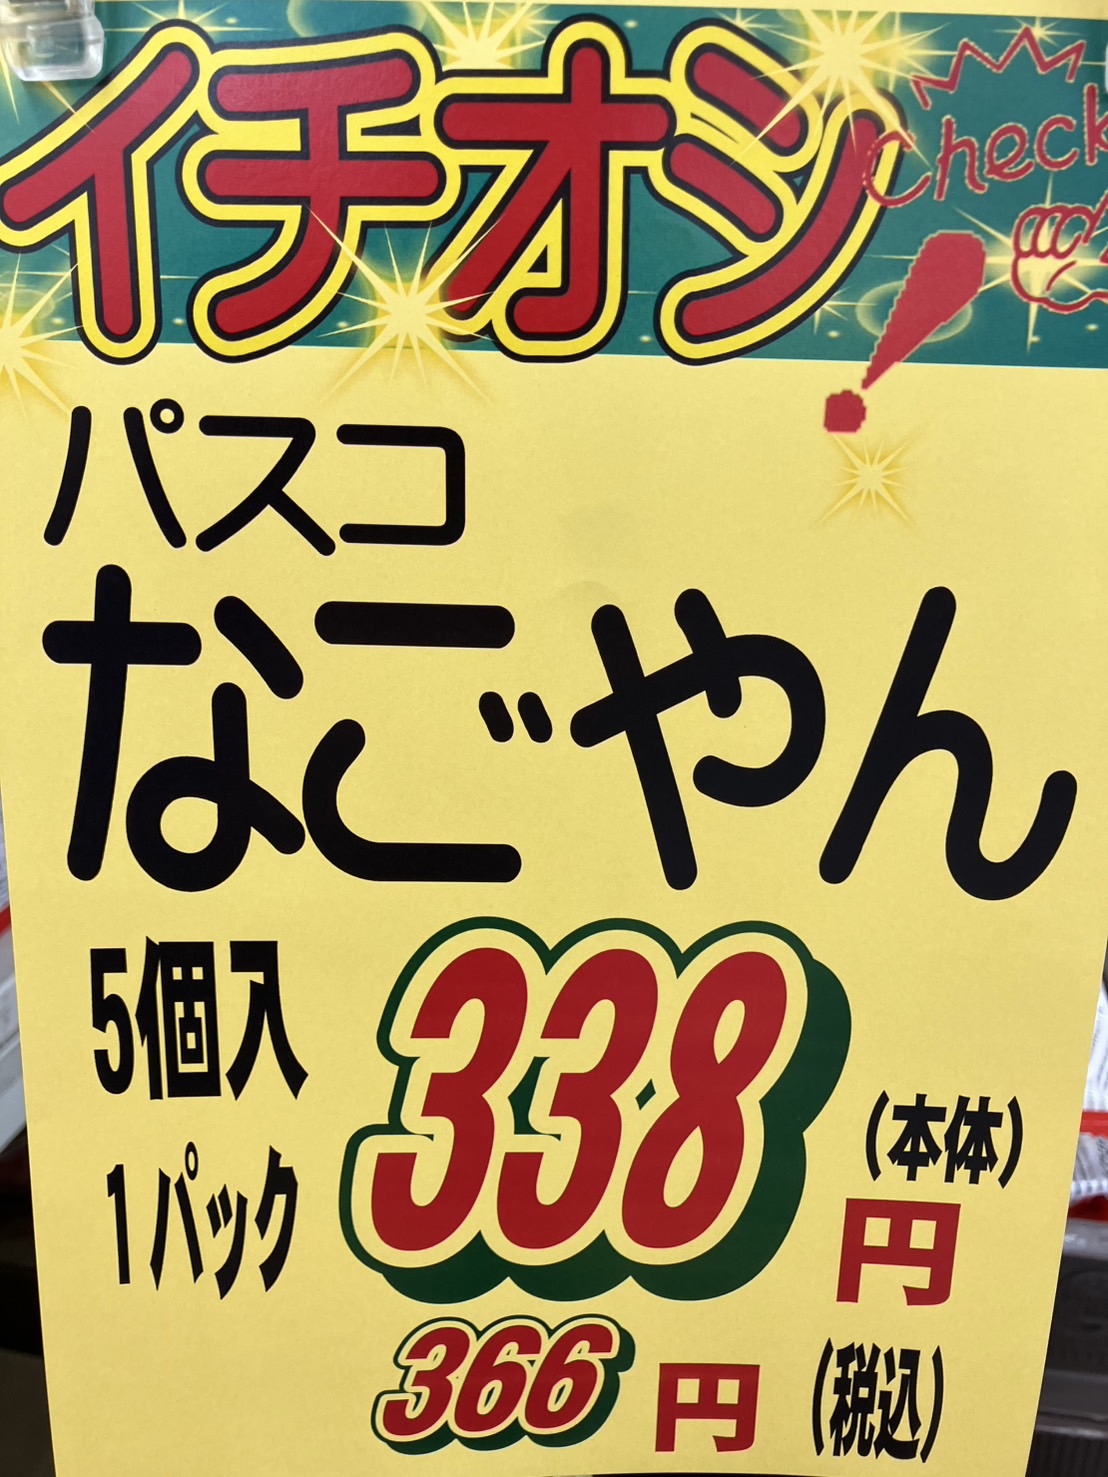 イチオシ
Check
!
パスコ
なごやん
5個入
1パック
338円(本体)
366円(税込)